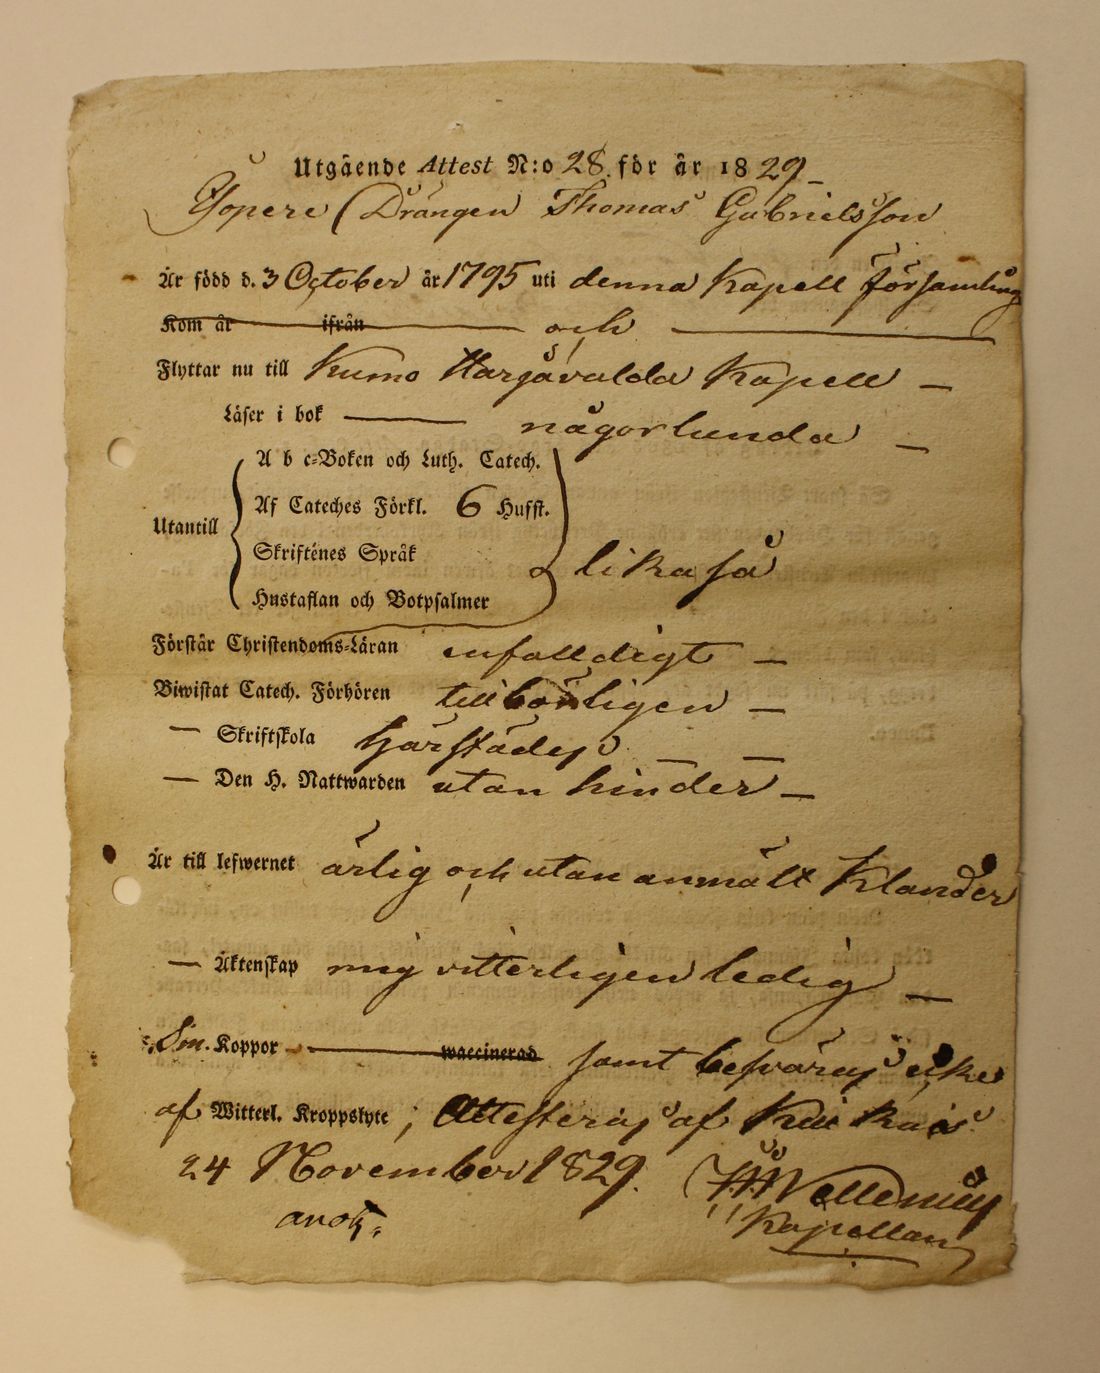 Utgående Attest N:o 28. för år 1829
Drängen Thomas Gabrielsson
Är född d. 3 October år 1795 uti denna Kapell församling
Kom år ifrån och
Flyttar nu till Kumo Harjávalda Kapell –
Läser i bok någorlunda –
A b c-Boken och Luth. Catech.
Af Cateches Förkl. 6 Hufst.
Utantill
Skriftenes Språk
likaså
Hustaflan och Botpsalmer
Förstår Christendoms-Läran enfalldigt –
Biwistat Catech. Förhören tillbörligen –
– Skriftskola härstädes – –
– Den H. Nattwarden utan hinder –
Är till lefwernet ärlig och utan anmält Klander
– Äktenskap mig vitterligen ledig –
Koppor waccinerad samt besväras icke
af Witterl. Kroppslyte; Attesteras af Kiukais
24 November 1829.
Kapellan